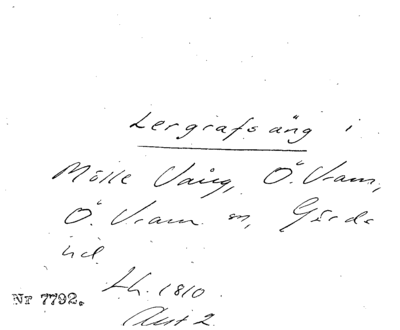 Lergrafsäng i
Mölle Vång, Ö. Vram,
Ö. Vram sn, Gärds
hd
Lh. 1810
Akt 2
Nr 7792.